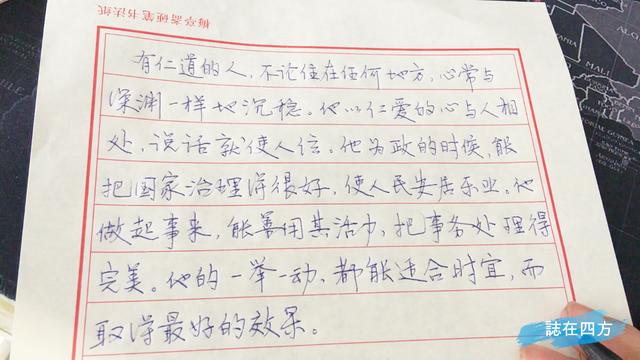 梅亭斋硬笔书法纸
有仁道的人，不论住在任何地方，心常与
深渊一样地沉稳。他以仁爱的心与人相
处，说话就使人信。他为政的时候，能
把国家治理得很好，使人民安居乐业。他
做起事来，能善用其活力、把事务处理得
完美。他的一举一动、都能适合时宜，而
取得最好的效果。
誌在四方